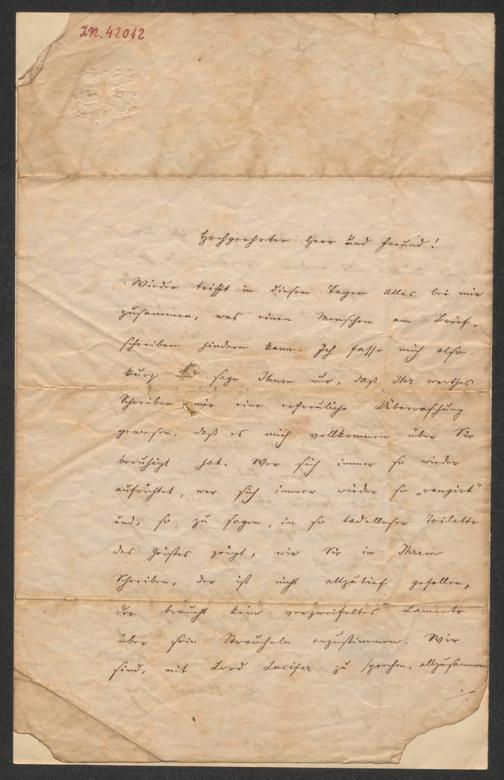 IN. 42012
Hochgeehrter Herr und Freund!
Wieder trifft in diesen Tagen Alles bei mir
zusammen, was einen Menschen am Brief-
schreiben hindern kann. Ich fasse mich also
kurz und sage Ihnen nur, daß Ihr werthes
Schreiben mir eine erfreuliche Überraschung
gewesen, daß es mich vollkommen über Sie
beruhigt hat. Wer sich immer so wieder
aufrichtet, wer sich immer wieder so „rangirt“
und, so zu sagen, in so tadelloser Toilette
des Geistes zeigt, wie Sie in Ihrem
Schreiben, der ist nicht allzutief gefallen,
der braucht kein verzweifeltes Lamento
über sein Straucheln anzustimmen. Wir
sind, mit Lord Lucifer zu sprechen, allzusammen